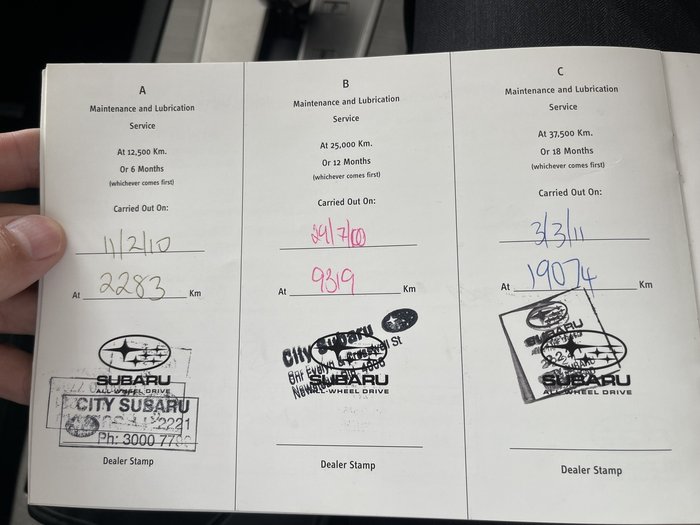 A
Maintenance and Lubrication
Service
At 12,500 Km.
Or 6 Months
(whichever comes first)
Carried Out On:
11/2/10
At 2283 Km
SUBARU
ALL-WHEEL DRIVE
CITY SUBARU
2221
Ph: 3000
Dealer Stamp
B
Maintenance and Lubrication
Service
At 25,000 Km.
Or 12 Months
(whichever comes first)
Carried Out On:
At 9319 Km
City Subaru
SUBARU
ALL-WHEEL DRIVE
Dealer Stamp
C
Maintenance and Lubrication
Service
At 37,500 Km.
Or 18 Months
(whichever comes first)
Carried Out On:
3/3/11
At 19074 Km
SUBARU
SUBARU
ALL-WHEEL DRIVE
Dealer Stamp